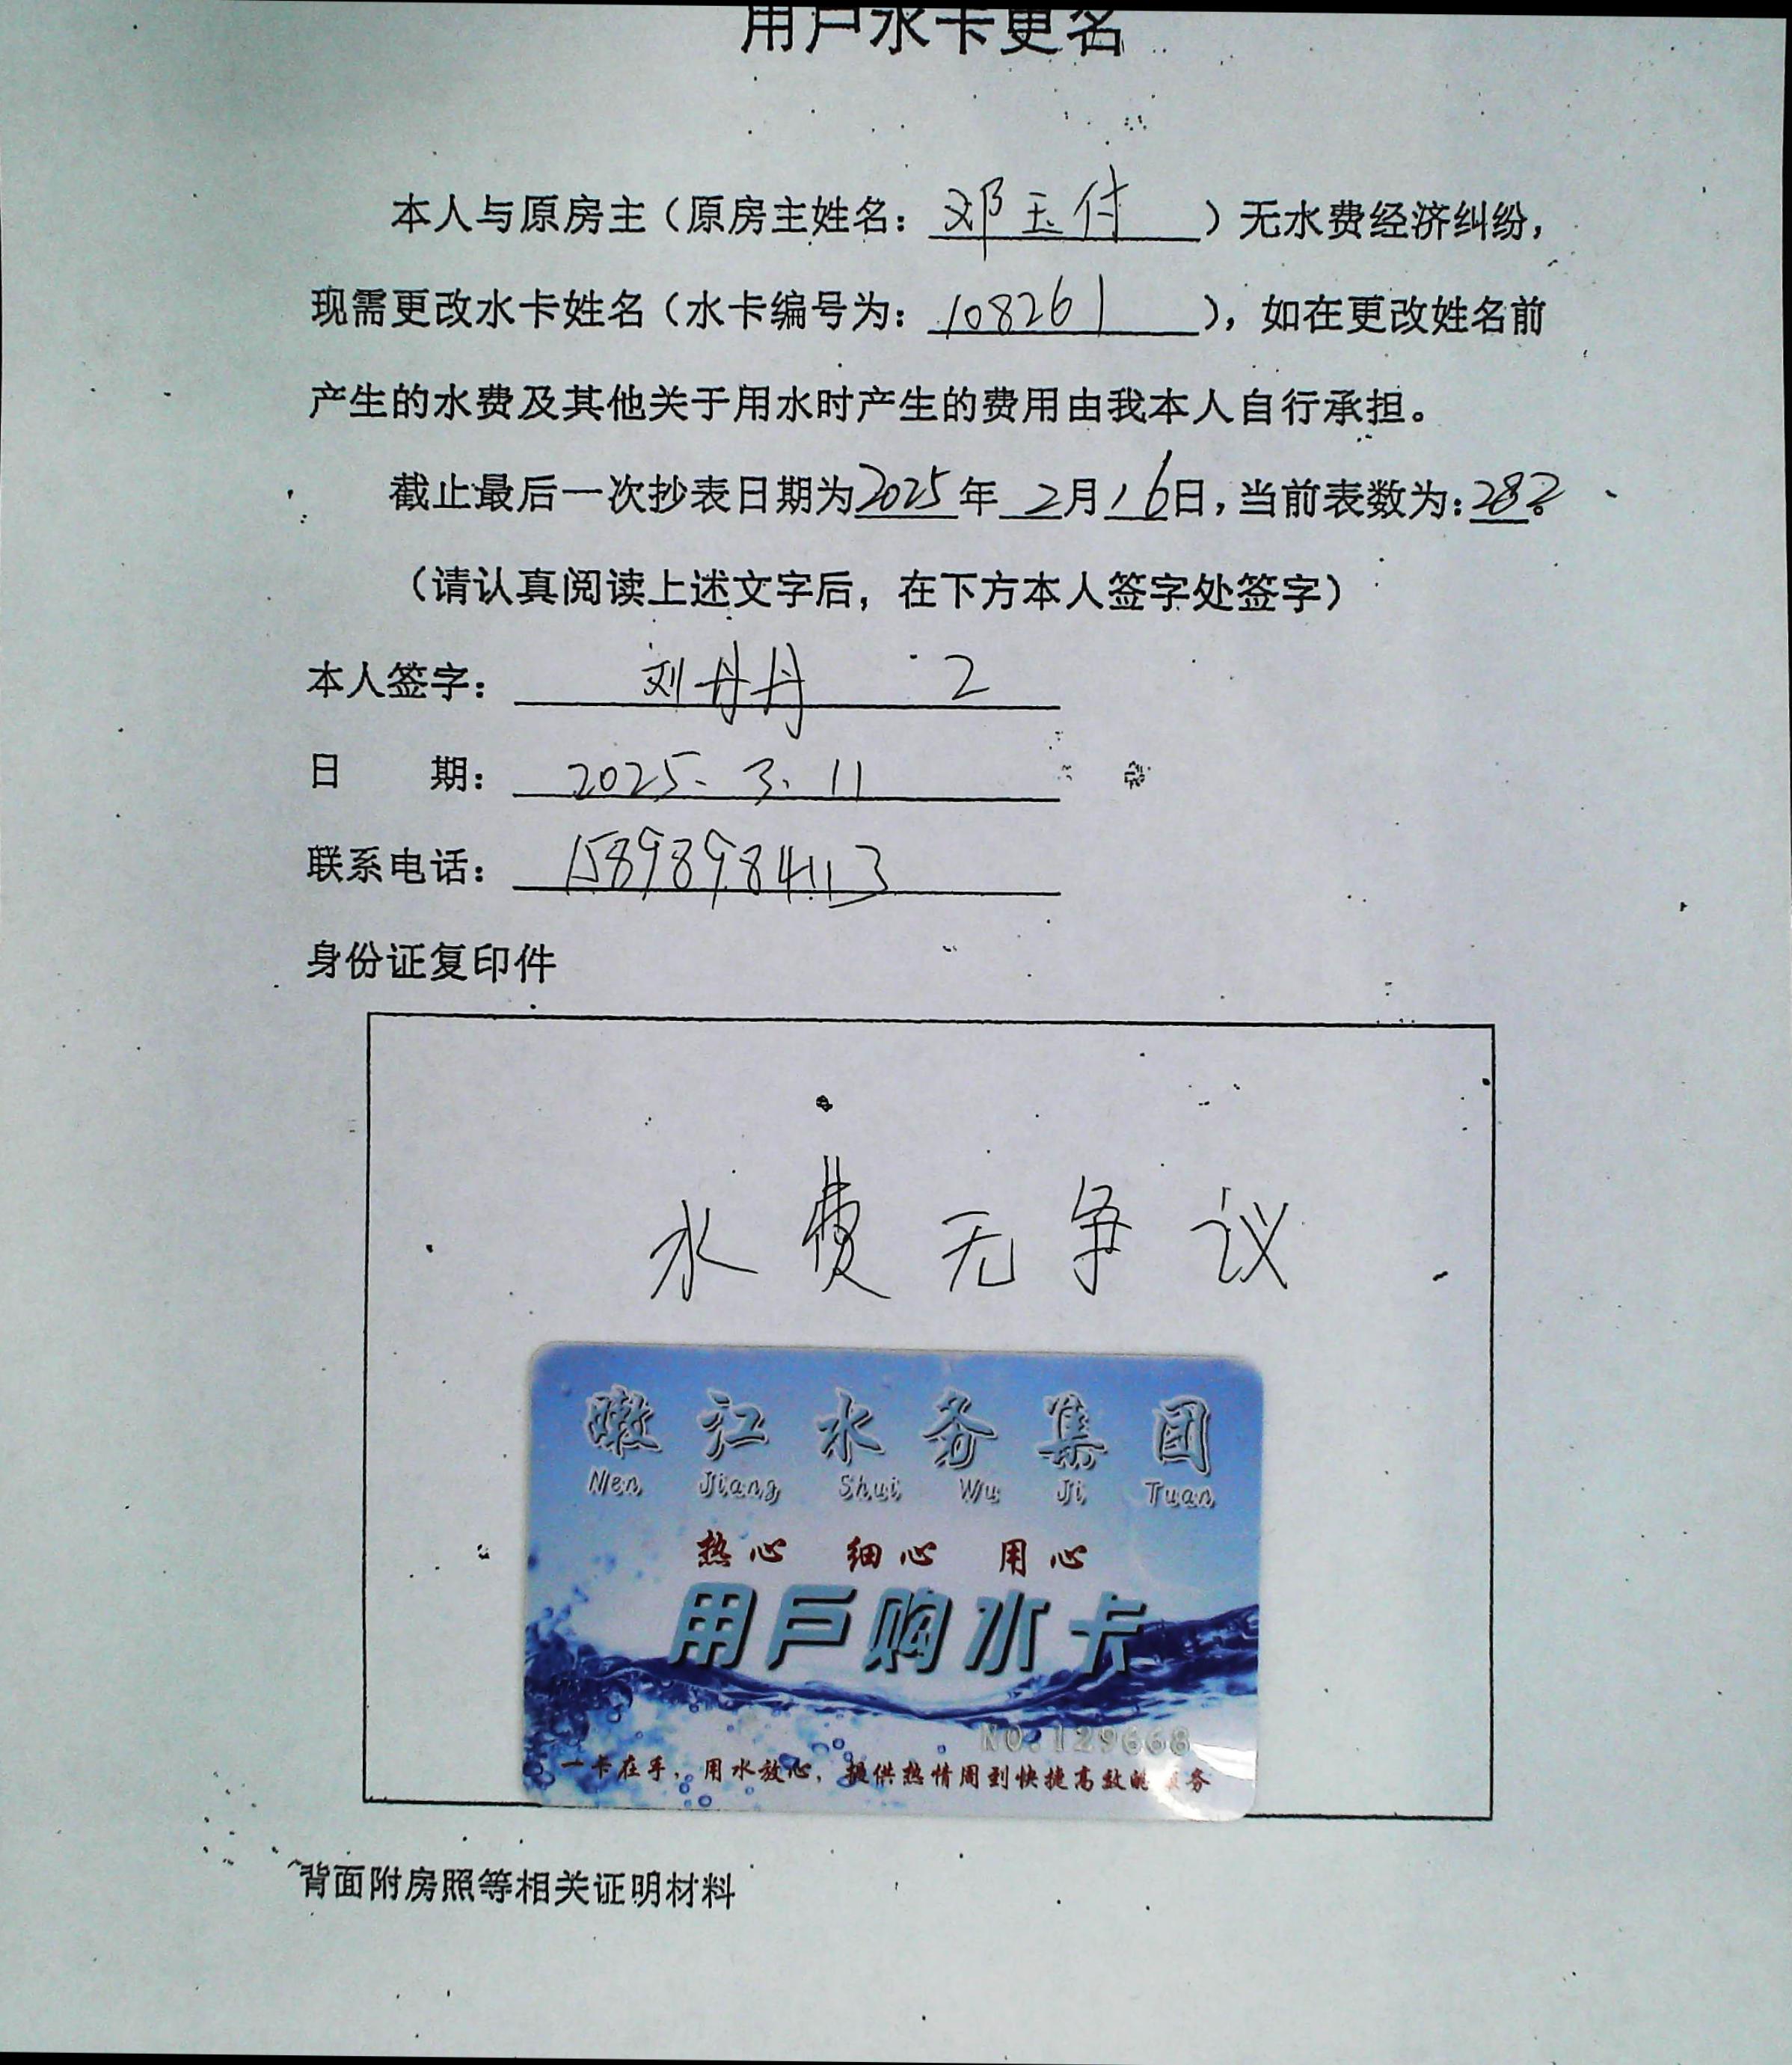 用户水卡更名
本人与原房主（原房主姓名：邓玉付）无水费经济纠纷，
现需更改水卡姓名（水卡编号为：108261），如在更改姓名前
产生的水费及其他关于用水时产生的费用由我本人自行承担。
截止最后一次抄表日期为2025年2月16日，当前表数为：282。
（请认真阅读上述文字后，在下方本人签字处签字）
本人签字：刘丹丹 2
日 期：2025.3.11
联系电话：15898984113
身份证复印件
水费无争议
嫩江水务集团
Nen Jiang Shui Wu Ji Tuan
热心 细心 用心
用户购水卡
NO.129668
一卡在手，用水放心，提供热情周到快捷高效的服务
背面附房照等相关证明材料